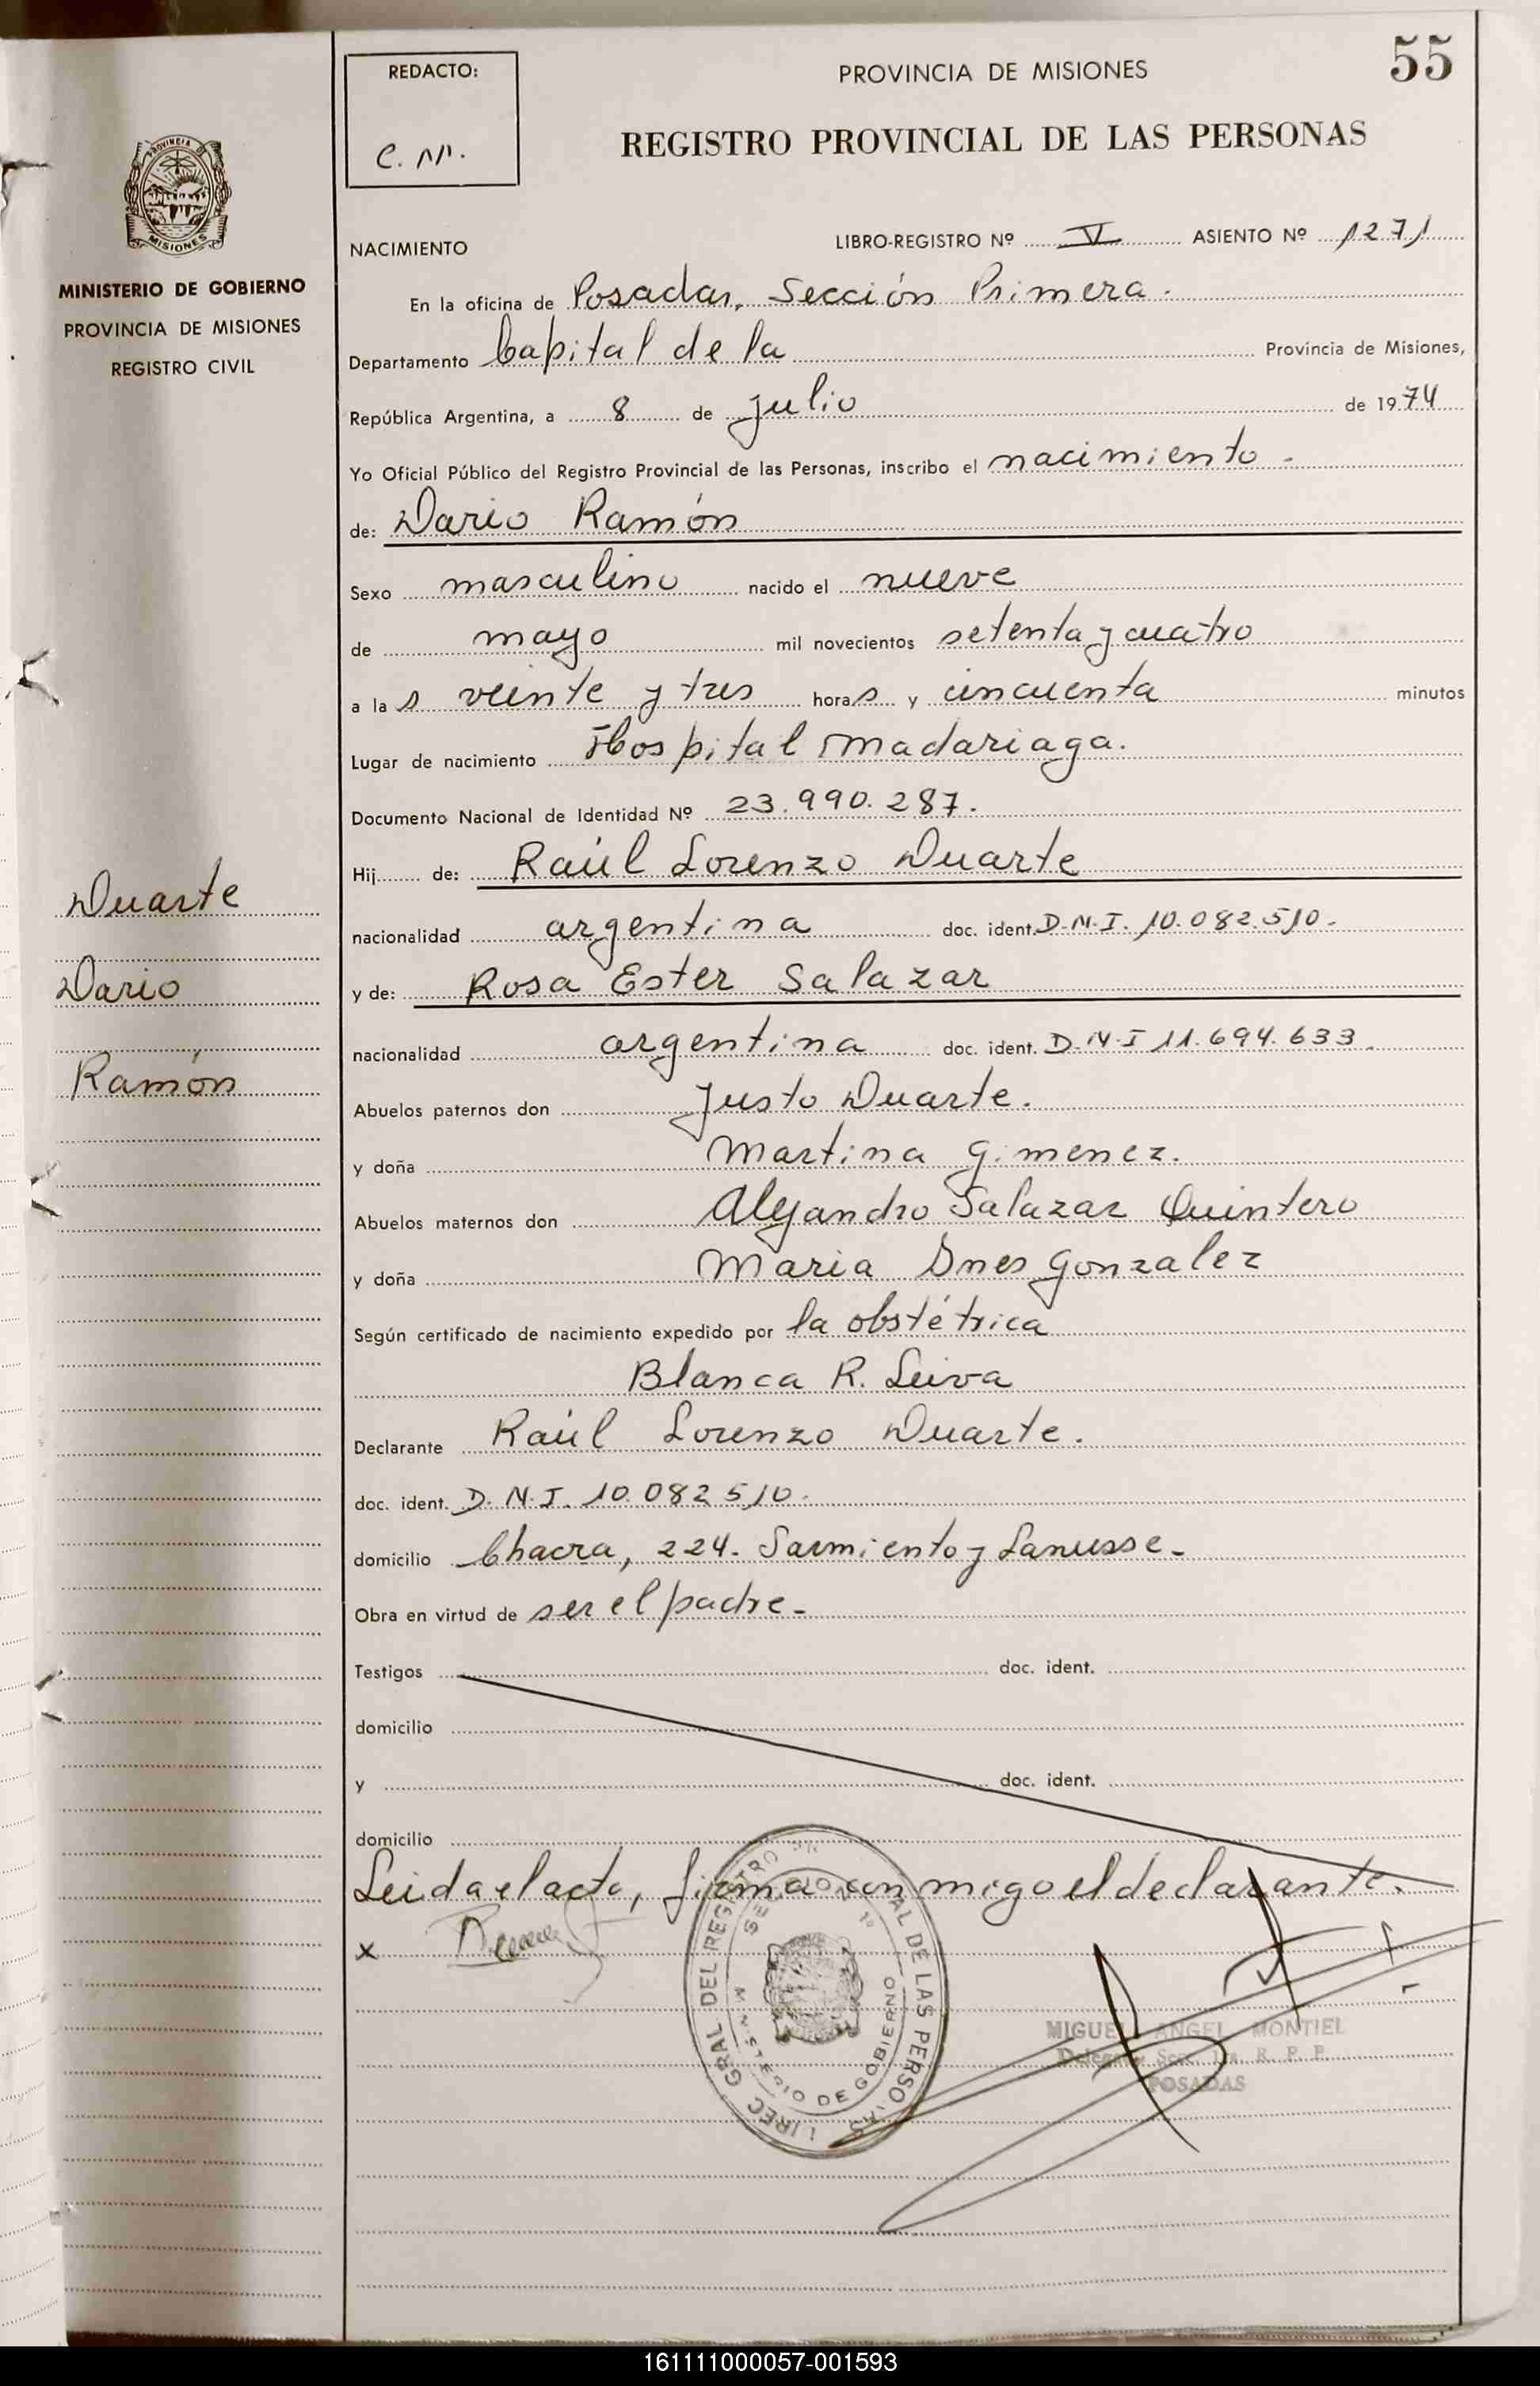 55
REDACTO:
C. M.
PROVINCIA DE MISIONES
REGISTRO PROVINCIAL DE LAS PERSONAS
PROVINCIA DE
MISIONES
MINISTERIO DE GOBIERNO
PROVINCIA DE MISIONES
REGISTRO CIVIL
NACIMIENTO
LIBRO-REGISTRO Nº V ASIENTO Nº 1271
En la oficina de Posadas, Sección Primera.
Departamento Capital de la Provincia de Misiones,
República Argentina, a 8 de julio de 1974
Yo Oficial Público del Registro Provincial de las Personas, inscribo el nacimiento -
de: Dario Ramón
Sexo masculino nacido el nueve
de mayo mil novecientos setenta y cuatro
a la s veinte y tres horas y cincuenta minutos
Lugar de nacimiento Hospital Madariaga.
Documento Nacional de Identidad Nº 23.990.287.
Hij de: Raúl Lorenzo Duarte
nacionalidad argentina doc. ident. D.N.I. 10.082.510.
y de: Rosa Ester Salazar
nacionalidad argentina doc. ident. D.N.I 11.694.633.
Abuelos paternos don Justo Duarte.
y doña Martina Gimenez.
Abuelos maternos don Alejandro Salazar Quintero
y doña Maria Ines Gonzalez
Según certificado de nacimiento expedido por la obstétrica
Blanca R. Leiva
Declarante Raúl Lorenzo Duarte.
doc. ident. D.N.I. 10.082510.
domicilio Chacra, 224. Sarmiento y Lanusse.
Obra en virtud de ser el padre.
Testigos doc. ident.
domicilio
y doc. ident.
domicilio
Leida el acta, firma conmigo el declarante.
x
Duarte
Dario
Ramón
MIGUEL ANGEL MONTIEL
Delegado Secc. 1ra R. P. P.
POSADAS
DIREC GRAL DEL REGISTRO DE LAS PERSONAS
SECCION 1º
MINISTERIO DE GOBIERNO
161111000057-001593